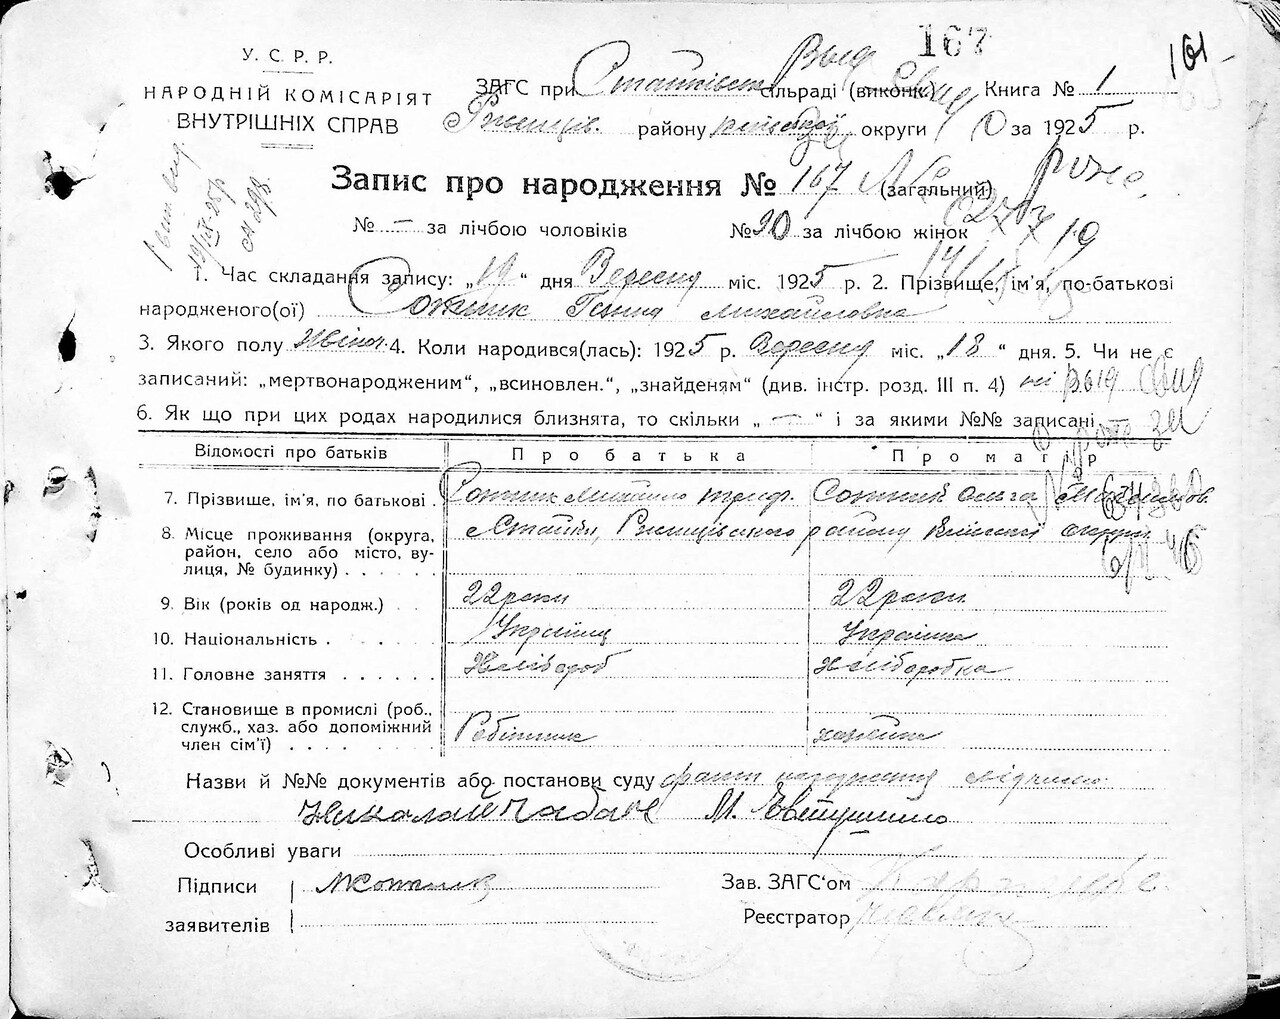 167
161
У. С. Р. Р.
НАРОДНІЙ КОМІСАРІЯТ
ВНУТРІШНІХ СПРАВ
ЗАГС при Стайківськ сільраді (виконк) Книга № 1
Ржищів. району Київської округи за 1925 р.
Запис про народження № 167 (загальний)
№ — за лічбою чоловіків №90 за лічбою жінок
1. Час складання запису: „19“ дня Вересня міс. 1925 р. 2. Прізвище, ім'я, по-батькові
народженого(ої) Сотник Ганна Михайловна
3. Якого полу Жіноч. 4. Коли народився(лась): 1925 р. Вересня міс. „18“ дня. 5. Чи не є
записаний: „мертвонародженим“, „всиновлен.“, „знайденям“ (див. інстр. розд. III п. 4) ні
6. Як що при цих родах народилися близнята, то скільки „—“ і за якими №№ записані
Відомості про батьків Про батька Про матір
7. Прізвище, ім'я, по батькові Сотник Михайло Триф. Сотник Ольга Максимов
8. Місце проживання (округа, Стайки, Ржищівського району Київської округи
район, село або місто, ву-
лиця, № будинку)
9. Вік (років од народж.) 22 роки 22 роки
10. Національність Українц Українка
11. Головне заняття Хлібороб Хліборобка
12. Становище в промислі (роб.,
служб., хаз. або допоміжний
член сім'ї) Робітник
Назви й №№ документів або постанови суду факт народження свідчили
Николай Чабан М. Евтушенко
Особливі уваги
Підписи МСотник Зав. ЗАГС'ом
заявителів Реєстратор